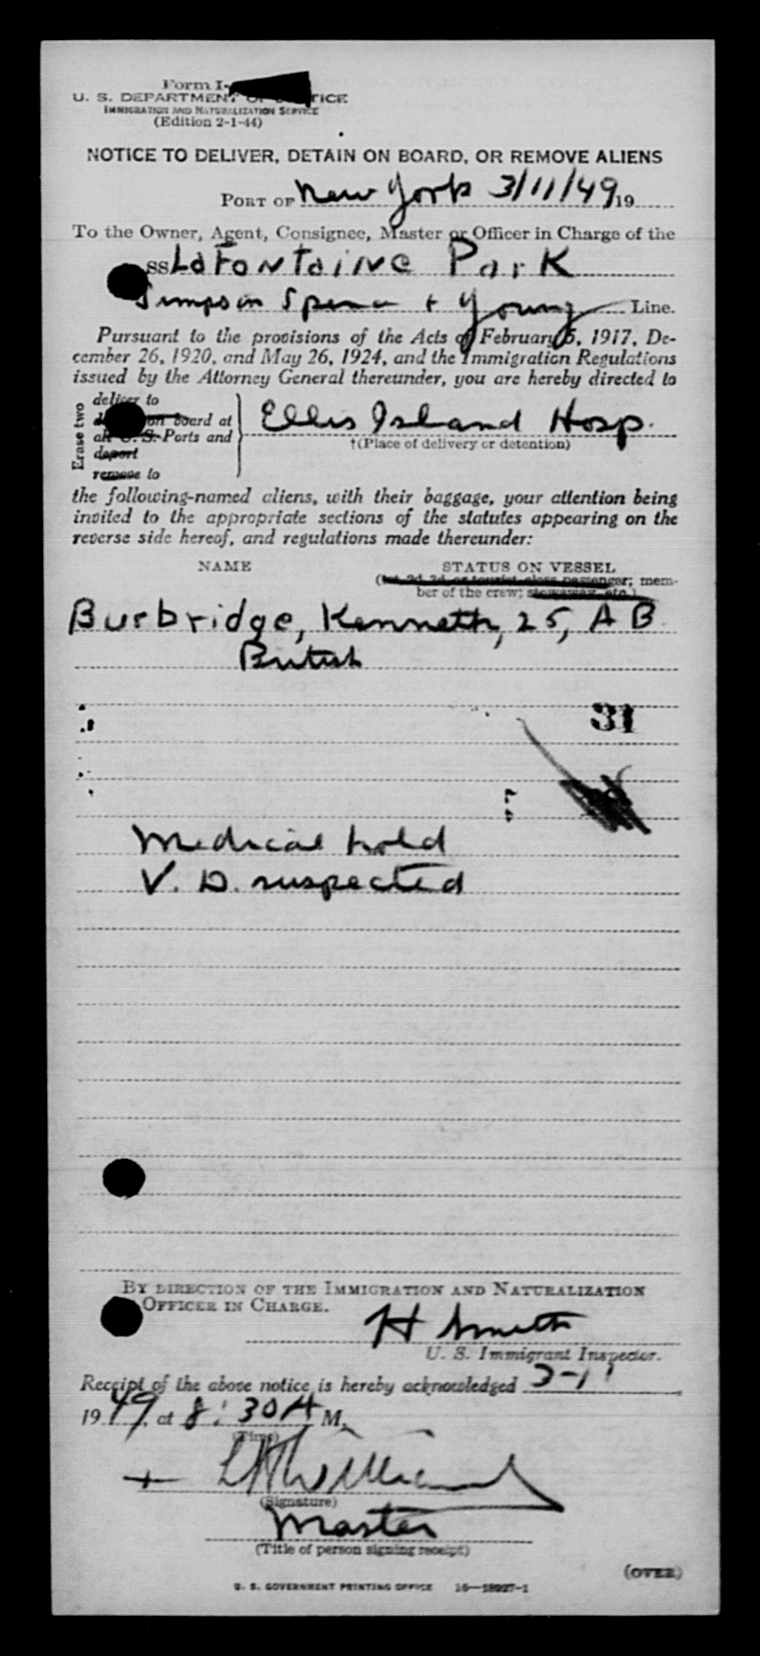 Form I-
U. S. DEPARTMENT OF JUSTICE
IMMIGRATION AND NATURALIZATION SERVICE
(Edition 2-1-44)
NOTICE TO DELIVER, DETAIN ON BOARD, OR REMOVE ALIENS
PORT OF New York 3/11/49 19
To the Owner, Agent, Consignee, Master or Officer in Charge of the
SS LaFontaine Park
Simpson Spence & Young Line.
Pursuant to the provisions of the Acts of February 5, 1917, De-
cember 26, 1920, and May 26, 1924, and the Immigration Regulations
issued by the Attorney General thereunder, you are hereby directed to
Erase two
deliver to
on board at
all U. S. Ports and
deport
remove to
Ellis Island Hosp.
†(Place of delivery or detention)
the following-named aliens, with their baggage, your attention being
invited to the appropriate sections of the statutes appearing on the
reverse side hereof, and regulations made thereunder:
NAME STATUS ON VESSEL
(1st, 2d, 3d, or tourist class passenger; mem-
ber of the crew; stowaway, etc.)
Burbridge, Kenneth, 25, A B
British
31
Medical hold
V. D. suspected
BY DIRECTION OF THE IMMIGRATION AND NATURALIZATION
OFFICER IN CHARGE.
H Smith
U. S. Immigrant Inspector.
Receipt of the above notice is hereby acknowledged 3-11
1949, at 8:30 A M.
(Time)
Williams
(Signature)
Master
(Title of person signing receipt)
(OVER)
U. S. GOVERNMENT PRINTING OFFICE 16—18927-1